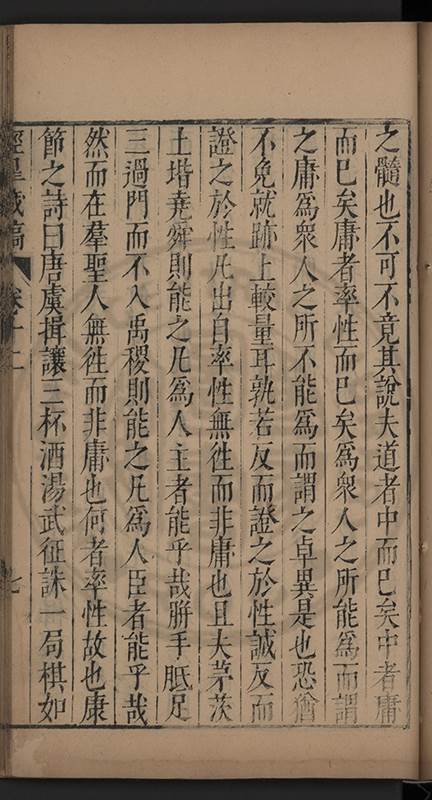 之髓也不可不竟其說夫道者中而已矣中者庸
而已矣庸者率性而已矣為衆人之所能為而謂
之庸為衆人之所不能為而謂之卓異是也恐猶
不免就跡上較量耳孰若反而證之於性誠反而
證之於性凡出自率性無徃而非庸也且夫茅茨
土堦堯舜則能之凡為人主者能乎哉胼手胝足
三過門而不入禹稷則能之凡為人臣者能乎哉
然而在羣聖人無徃而非庸也何者率性故也康
節之詩曰唐虞揖讓三杯酒湯武征誅一局棋如
涇臯藏稿 卷十二 七